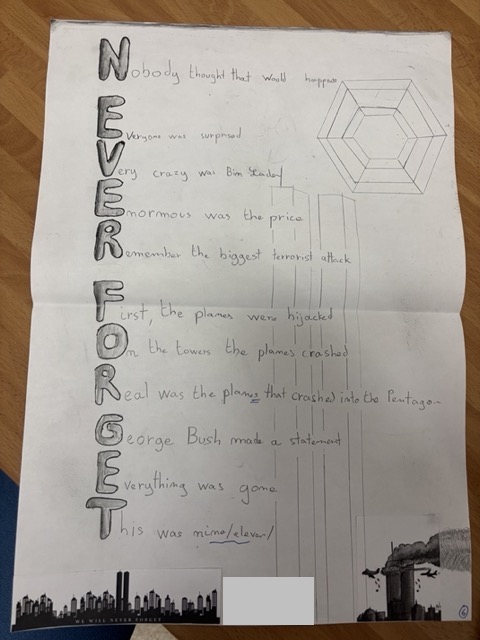 Nobody thought that would happen
Everyone was surprised
Very crazy was Bim Laden
Enormous was the price
Remember the biggest terrorist attack
First, the planes were hijacked
On the towers the planes crashed
Real was the planes that crashed into the Pentagon
George Bush made a statement
Everything was gone
This was nine/eleven/
WE WILL NEVER FORGET
6